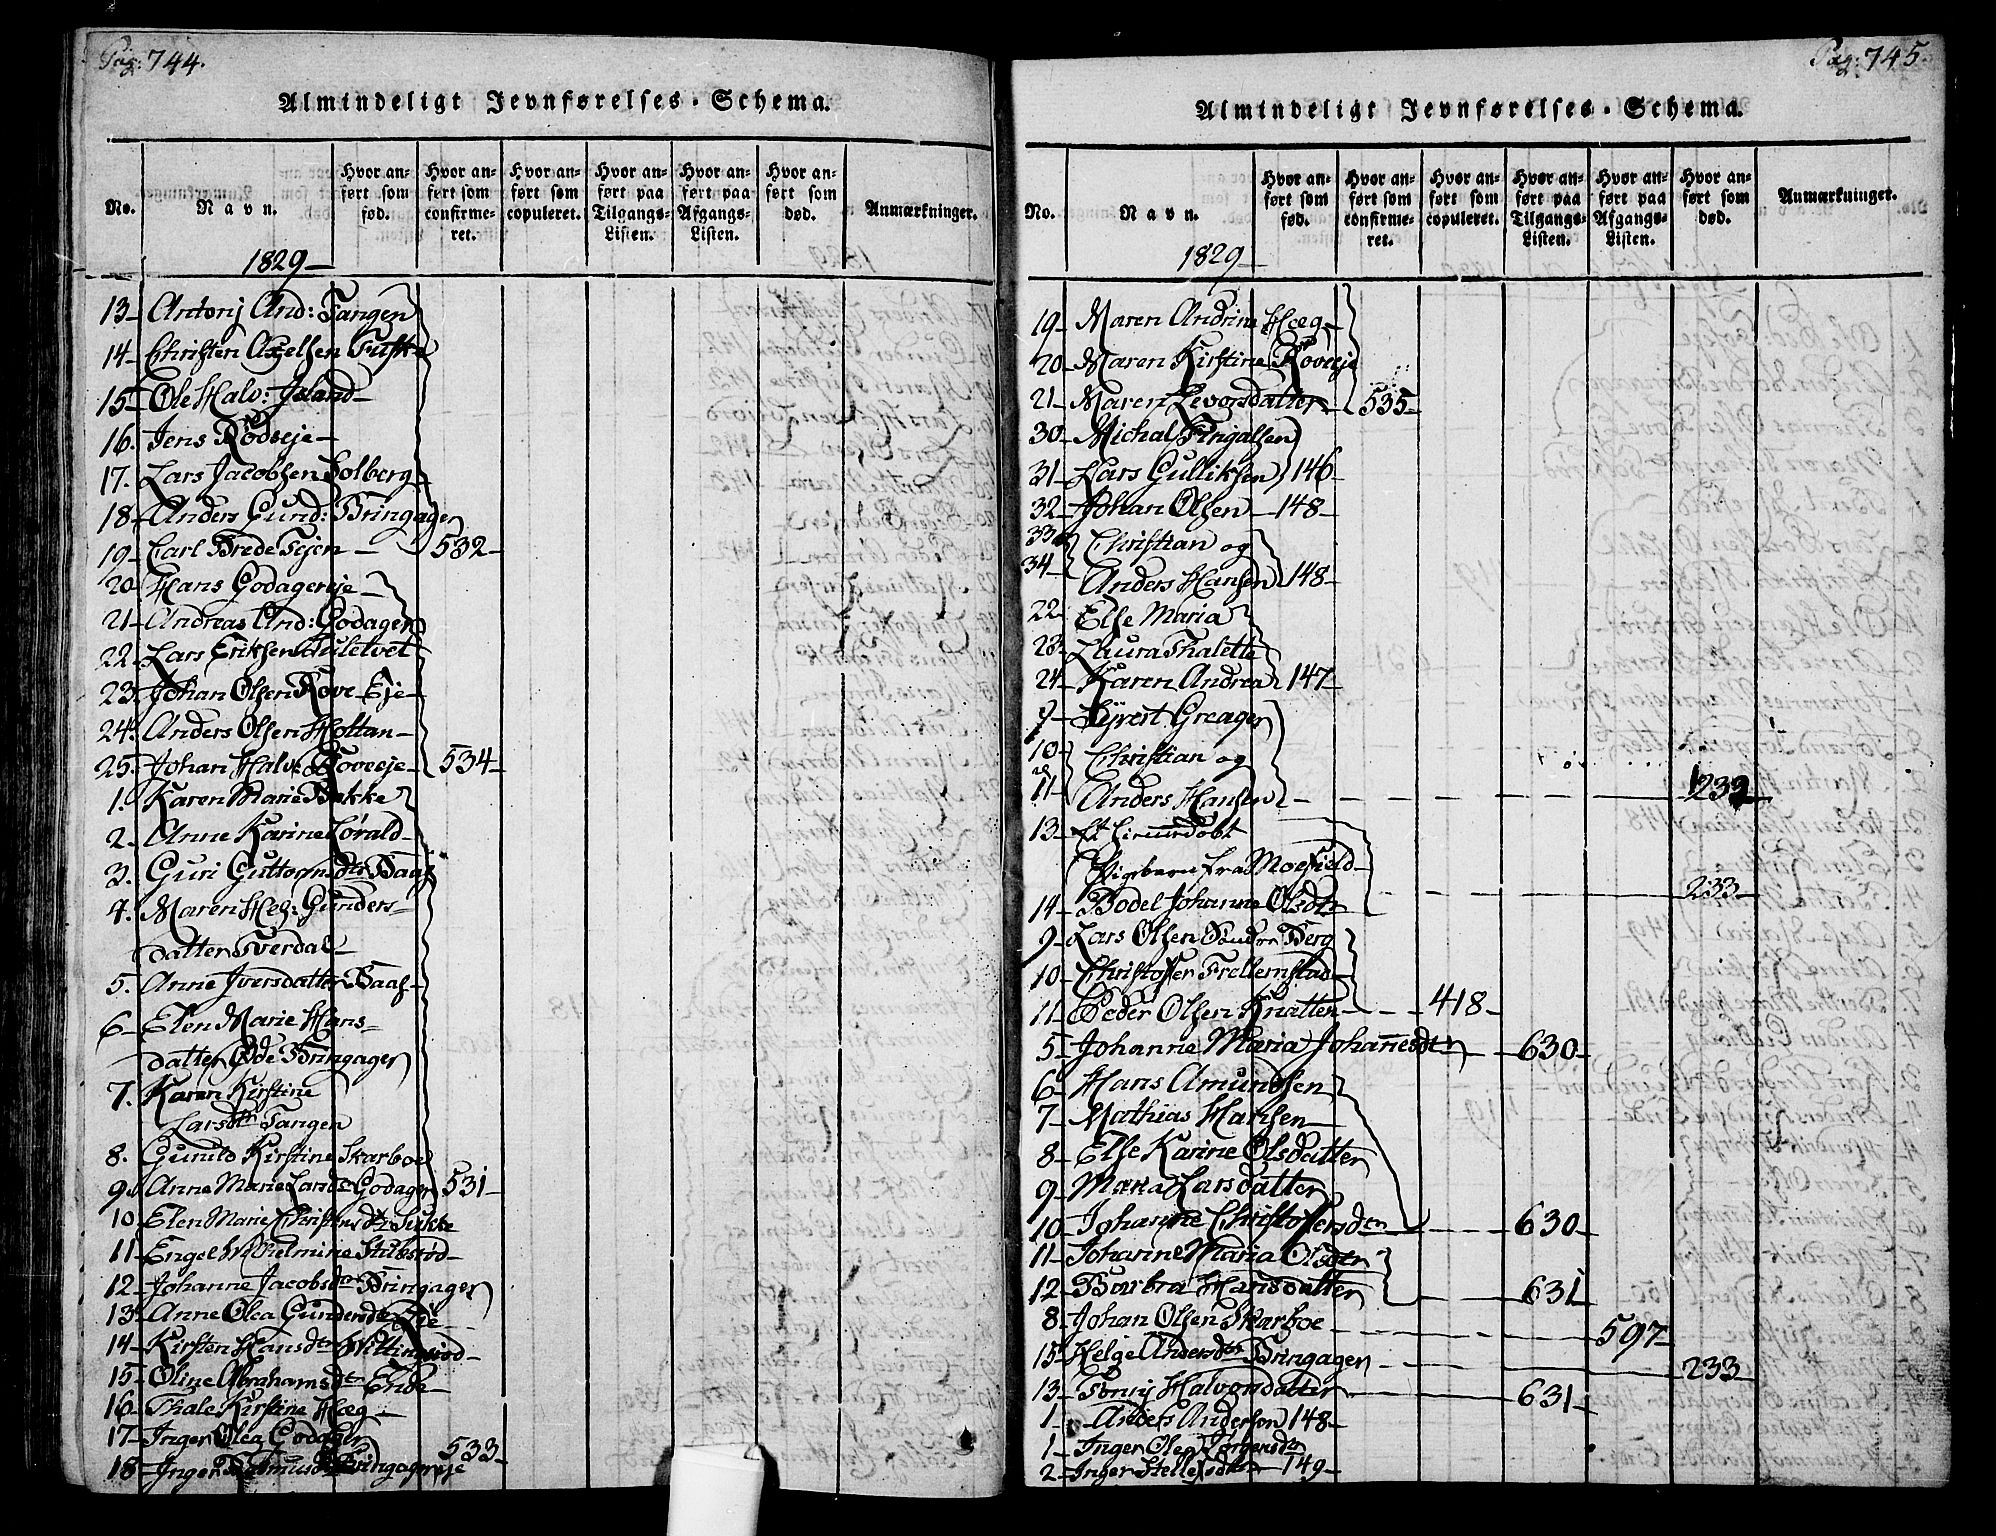 Pag: 744.
Almindeligt Jevnførelses-Schema.
No. Navn. Hvor anført som fød. Hvor anført som confirmeret. Hvor anført som copuleret. Hvor anført paa Tilgangs-Listen. Hvor anført paa Afgangs-Listen. Hvor anført som død. Anmærkninger.
1829
13 Antonj And: Tangen
14 Christen Axelsen
15 Ole Halv: Island
16. Jens Rødseje
17. Lars Jacobsen Solberg
18 Anders Gund: Bringager
19 Carl Brede Tejen 532
20 Hans Godagereje
21 Andreas And: Godager
22 Lars Eriksen Huletvet
23 Johan Olsen Rove Eje
24 Anders Olsen Hottan
25. Johan Halv: Roveeje 534
1. Karen Marie Bakke
2. Anne Karine
3. Guri Guttormsdtr Baas
4. Maren Heg: Gunders-
datter Sverdal
5. Anne Iversdatter Baas
6 Elen Marie Hans-
datter Øde Bringager
7. Karen Kirstine
Larsdtr Tangen
8. Gunild Kirstine Skarboe
9 Anne Marie Larsdtr Godager 531
10. Elen Marie Christensdtr
11 Engel Wilhelmine Stubsrød
12 Johanne Jacobsdtr Bringager
13 Anne Olea Gundersdtr Eje
14 Kirsten Hansdtr Hvittingsrød
15 Oline Abrahamsdtr Ende
16 Thale Kirstine Høeg
17 Inger Olea Godager
18 Inger Rasmusd: Bringagereje 533
Pag: 745.
Almindeligt Jevnførelses-Schema.
No. Navn. Hvor anført som fød. Hvor anført som confirmeret. Hvor anført som copuleret. Hvor anført paa Tilgangs-Listen. Hvor anført paa Afgangs-Listen. Hvor anført som død. Anmærkninger.
1829
19 Maren Andrine Høeg
20 Maren Kirstine Roveeje
21 Maren Levorsdatter 535
30 Michal Fingalsen
31 Lars Gulliksen 146
32 Johan Olsen 148
33 Christian og
34 Anders Hansen 148
22 Else Maria
23 Laura Thalette
24 Karen Andrea 147
9 Syvert Greager
10 Christian og
11 Anders Hansen 232
13 Et Uimmerdøbt
Pigebarn fra Moefield
14 Bodel Johanne Olsdtr 233
9 Lars Olsen Søndre Berg
10 Christofer Trellemstad
11 Peder Olsen Knatten 418
5 Johanne Maria Johanesdtr 630
6 Hans Amundsen
7 Mathias Hansen
8 Else Karine Olsdatter
9 Maria Larsdatter
10 Johanne Christofersdtr 630
11 Johanne Maria Olsdtr
12 Barbra Hansdatter 631
8 Johan Olsen Skarboe 597
15 Helge Andersdtr Bringager 233
13 Tonny Halvorsdatter 631
1 Anders Anderson 148
1 Inger Olea Jørgensdtr
2 Inger 149